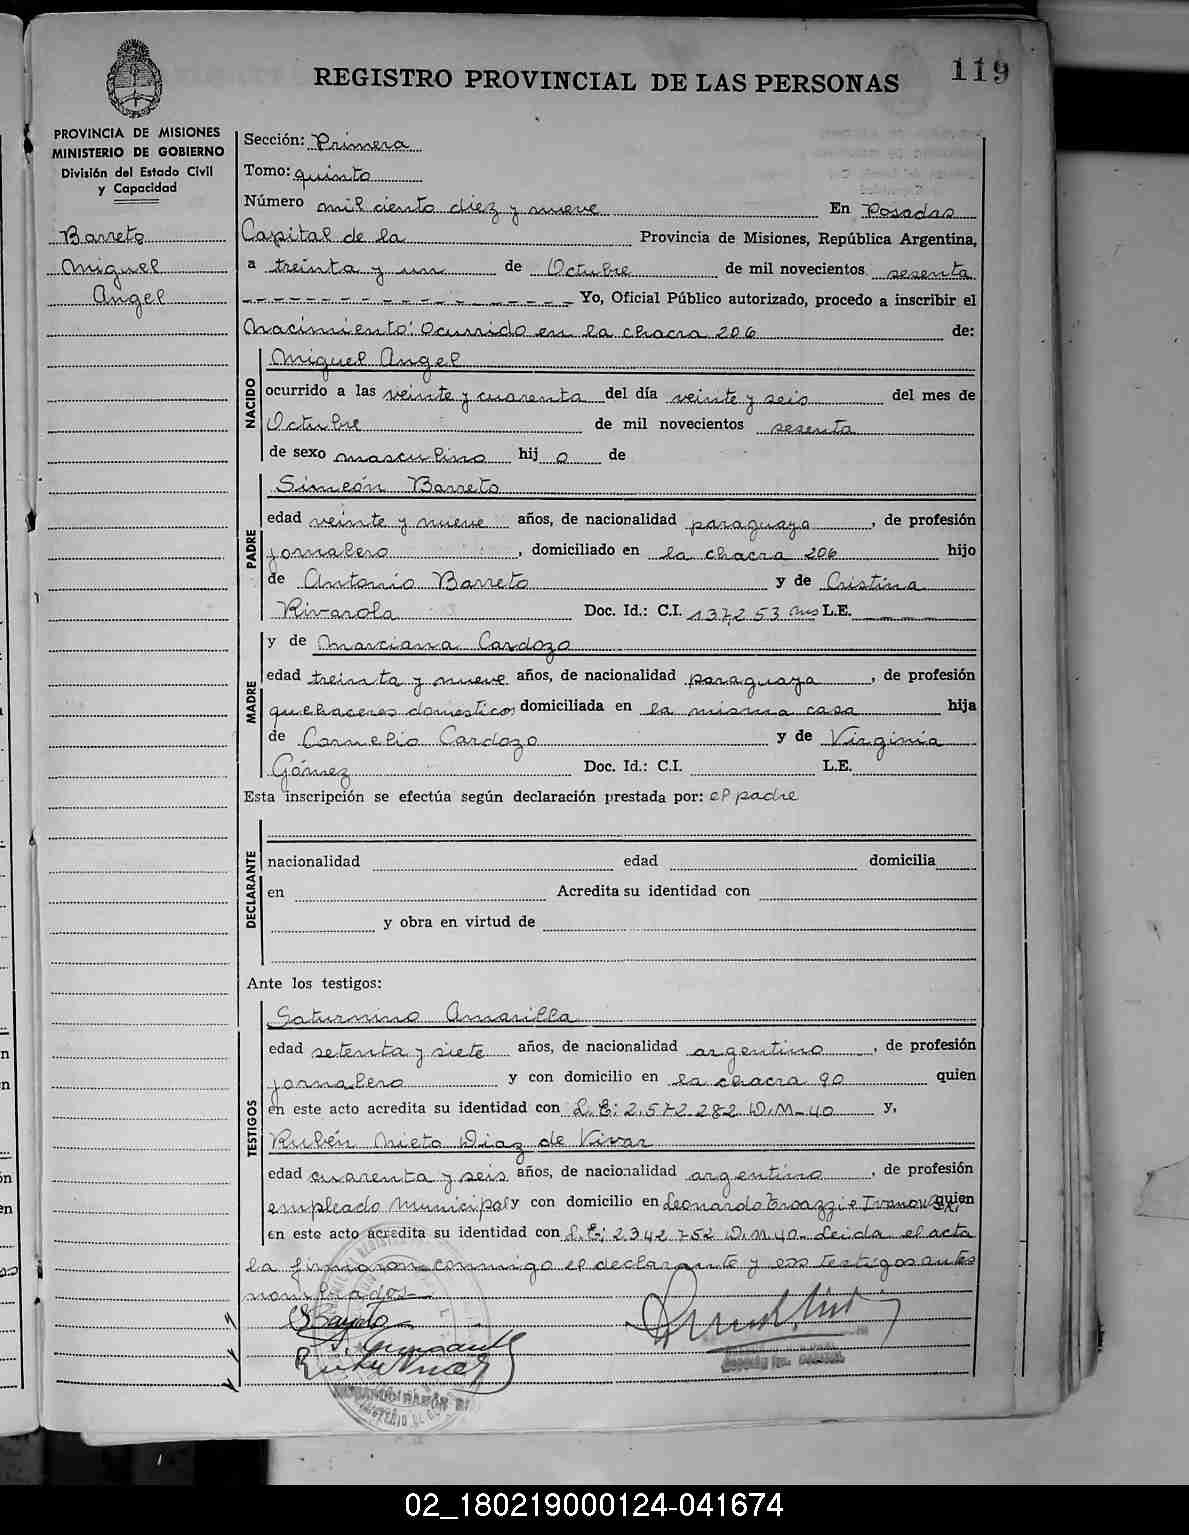 REGISTRO PROVINCIAL DE LAS PERSONAS
119
PROVINCIA DE MISIONES
MINISTERIO DE GOBIERNO
División del Estado Civil
y Capacidad
Barreto
Miguel
Angel
Sección: Primera
Tomo: quinto
Número mil ciento diez y nueve En Posadas
Capital de la Provincia de Misiones, República Argentina,
a treinta y un de Octubre de mil novecientos sesenta
Yo, Oficial Público autorizado, procedo a inscribir el
Nacimiento: Ocurrido en la chacra 206 de:
NACIDO
Miguel Angel
ocurrido a las veinte y cuarenta del día veinte y seis del mes de
Octubre de mil novecientos sesenta
de sexo masculino hij o de
PADRE
Simeón Barreto
edad veinte y nueve años, de nacionalidad paraguaya, de profesión
jornalero, domiciliado en la chacra 206 hijo
de Antonio Barreto y de Cristina
Rivarola Doc. Id.: C.I. 137.253 Mns L.E.
MADRE
y de Marciana Cardozo
edad treinta y nueve años, de nacionalidad paraguaya, de profesión
quehaceres domesticos domiciliada en la misma casa hija
de Cornelio Cardozo y de Virginia
Gómez Doc. Id.: C.I. L.E.
Esta inscripción se efectúa según declaración prestada por: el padre
DECLARANTE
nacionalidad edad domicilia
en Acredita su identidad con
y obra en virtud de
Ante los testigos:
TESTIGOS
Saturnino Amarilla
edad setenta y siete años, de nacionalidad argentino, de profesión
jornalero y con domicilio en la chacra 90 quien
en este acto acredita su identidad con L.E; 2.572.282 D.M-40 y,
Rubén Nieto Diaz de Vivar
edad cuarenta y seis años, de nacionalidad argentino, de profesión
empleado municipal y con domicilio en Leonardo Troazzi e Ivanowski, quien
en este acto acredita su identidad con L.E; 2342 752 D.M.40- Leida el acta
la firmaron conmigo el declarante y los testigos antes
nombrados-
S Barreto
02_180219000124-041674